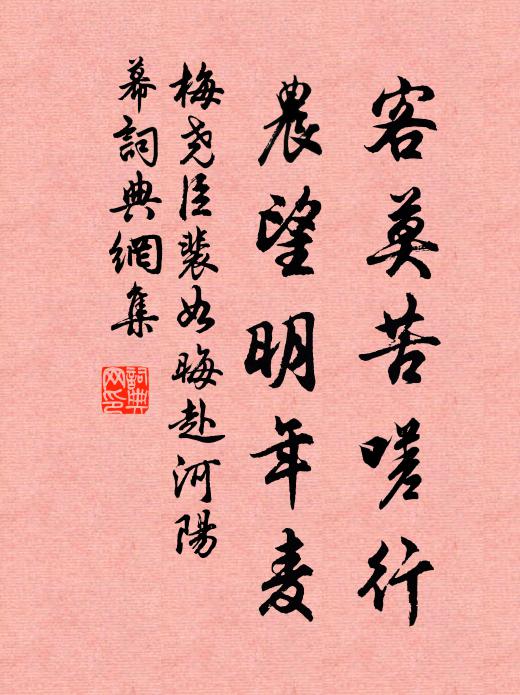 客莫苦嗟行
農望明年麦
梅尧臣裴如晦赴河陽
幕詞典網集
詞典
网印